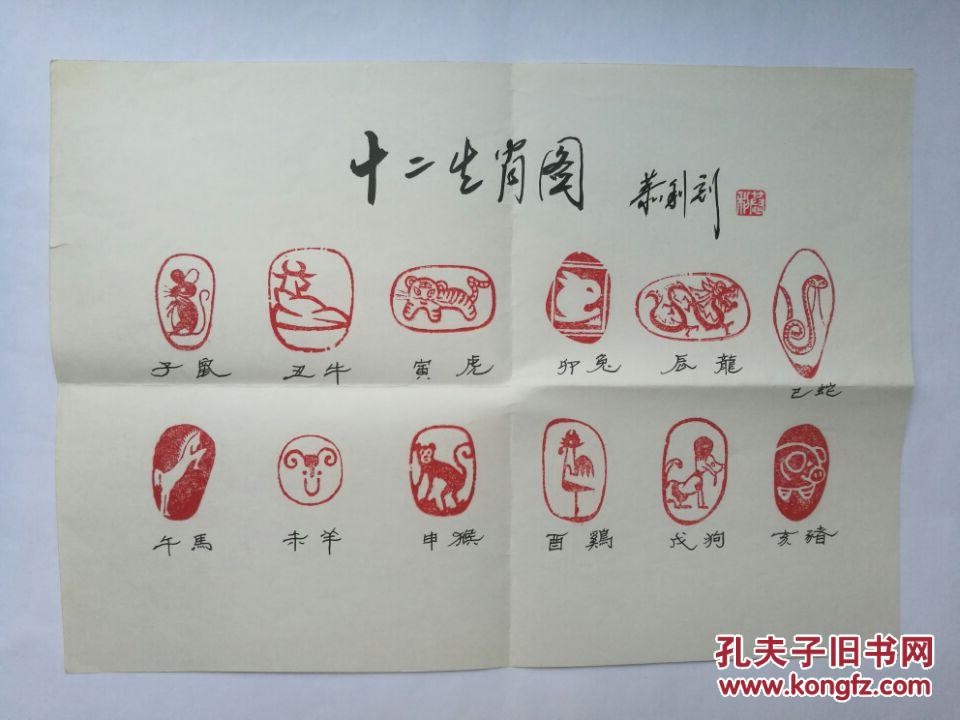 十二生肖图 恭利刻
子鼠 丑牛 寅虎 卯兔 辰龍 巳蛇
午馬 未羊 申猴 酉鷄 戌狗 亥豬
孔夫子旧书网
www.kongfz.com